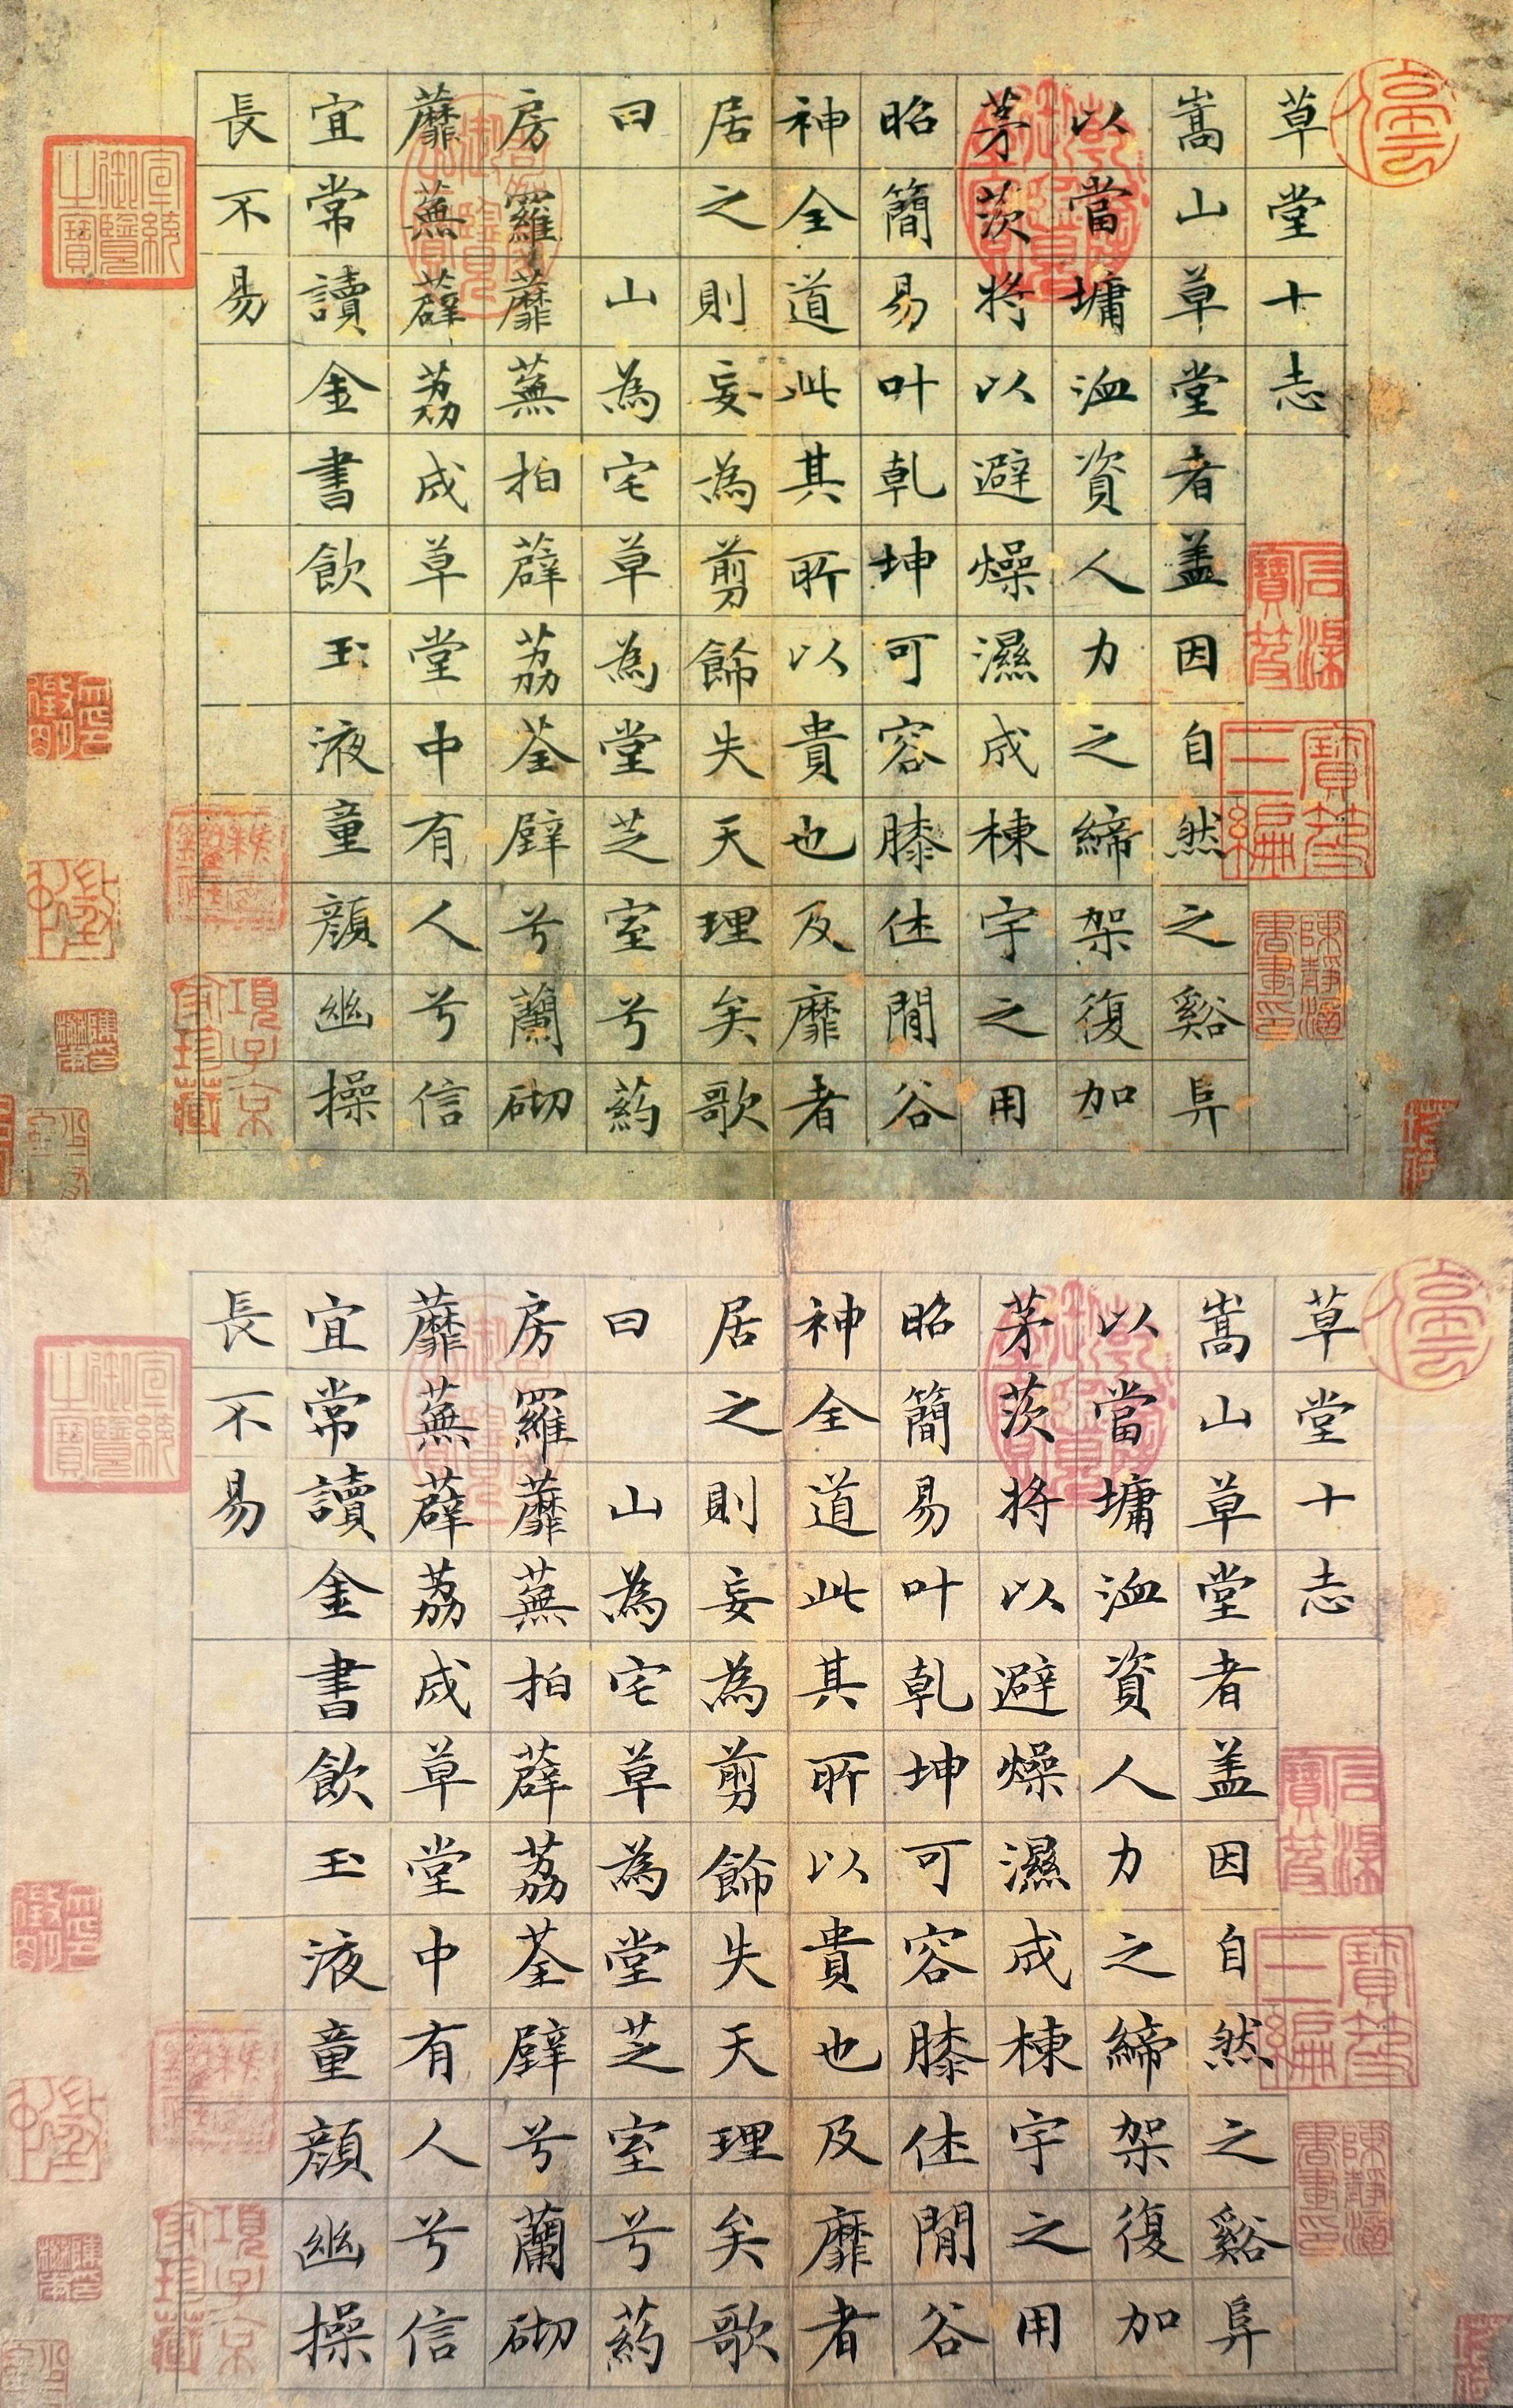 草堂十志
嵩山草堂者盖因自然之谿阜
以當墉洫資人力之締架復加
茅茨将以避燥濕成棟宇之用
昭簡易叶乾坤可容膝休閒谷
神全道此其所以貴也及靡者
居之則妄為剪飾失天理矣歌
曰 山為宅草為堂芝室兮葯
房羅蘼蕪拍薜荔荃壁兮蘭砌
蘼蕪薜荔成草堂中有人兮信
宜常讀金書飲玉液童顏幽操
長不易
石渠寶笈
寶笈三編
宣統御覽之寶
項子京家珍藏
草堂十志
嵩山草堂者盖因自然之谿阜
以當墉洫資人力之締架復加
茅茨将以避燥濕成棟宇之用
昭簡易叶乾坤可容膝休閒谷
神全道此其所以貴也及靡者
居之則妄為剪飾失天理矣歌
曰 山為宅草為堂芝室兮葯
房羅蘼蕪拍薜荔荃壁兮蘭砌
蘼蕪薜荔成草堂中有人兮信
宜常讀金書飲玉液童顏幽操
長不易
石渠寶笈
寶笈三編
宣統御覽之寶
項子京家珍藏